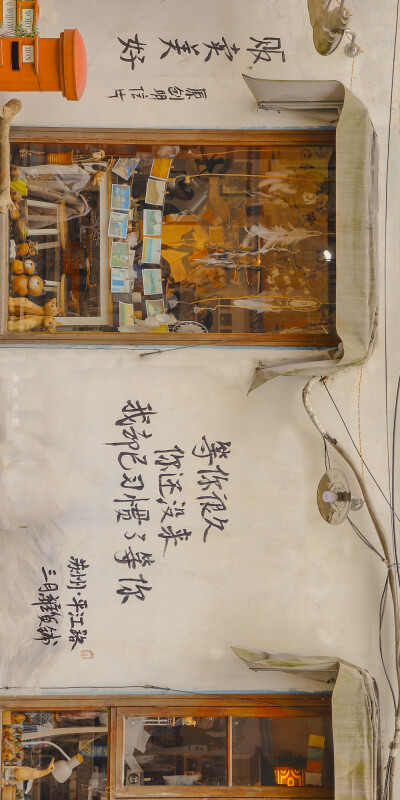 贩卖美好
原创明信片
等你很久
你还没来
我却已习惯了等你
苏州·平江路
三月雜货铺